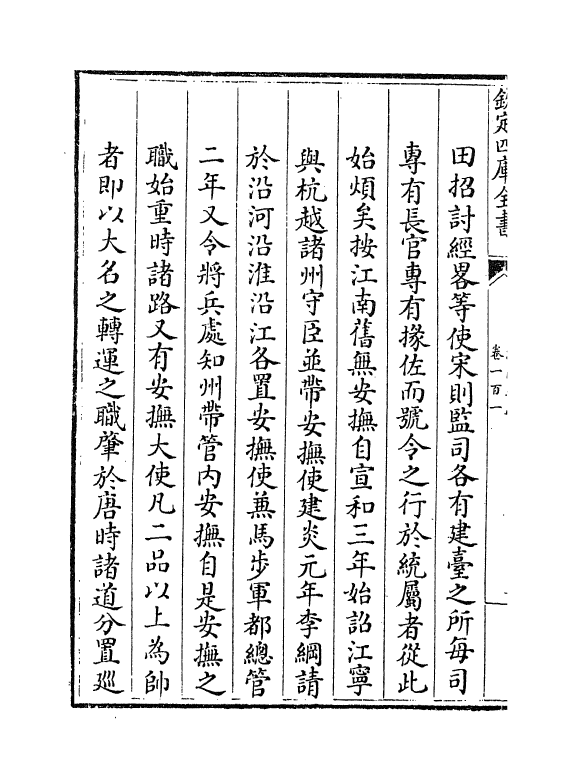 欽定四庫全書
卷一百一
田招討經畧等使宋則監司各有建臺之所每司
專有長官專有掾佐而號令之行於統屬者從此
始煩矣按江南舊無安撫自宣和三年始詔江寧
與杭越諸州守臣並帶安撫使建炎元年李綱請
於沿河沿淮沿江各置安撫使兼馬步軍都總管
二年又令將兵處知州帶管内安撫自是安撫之
職始重時諸路又有安撫大使凡二品以上為帥
者即以大名之轉運之職肇於唐時諸道分置巡